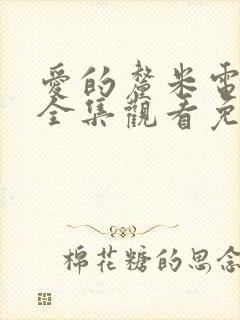 愛的釐米電
全集觀看免
棉花糖的思念